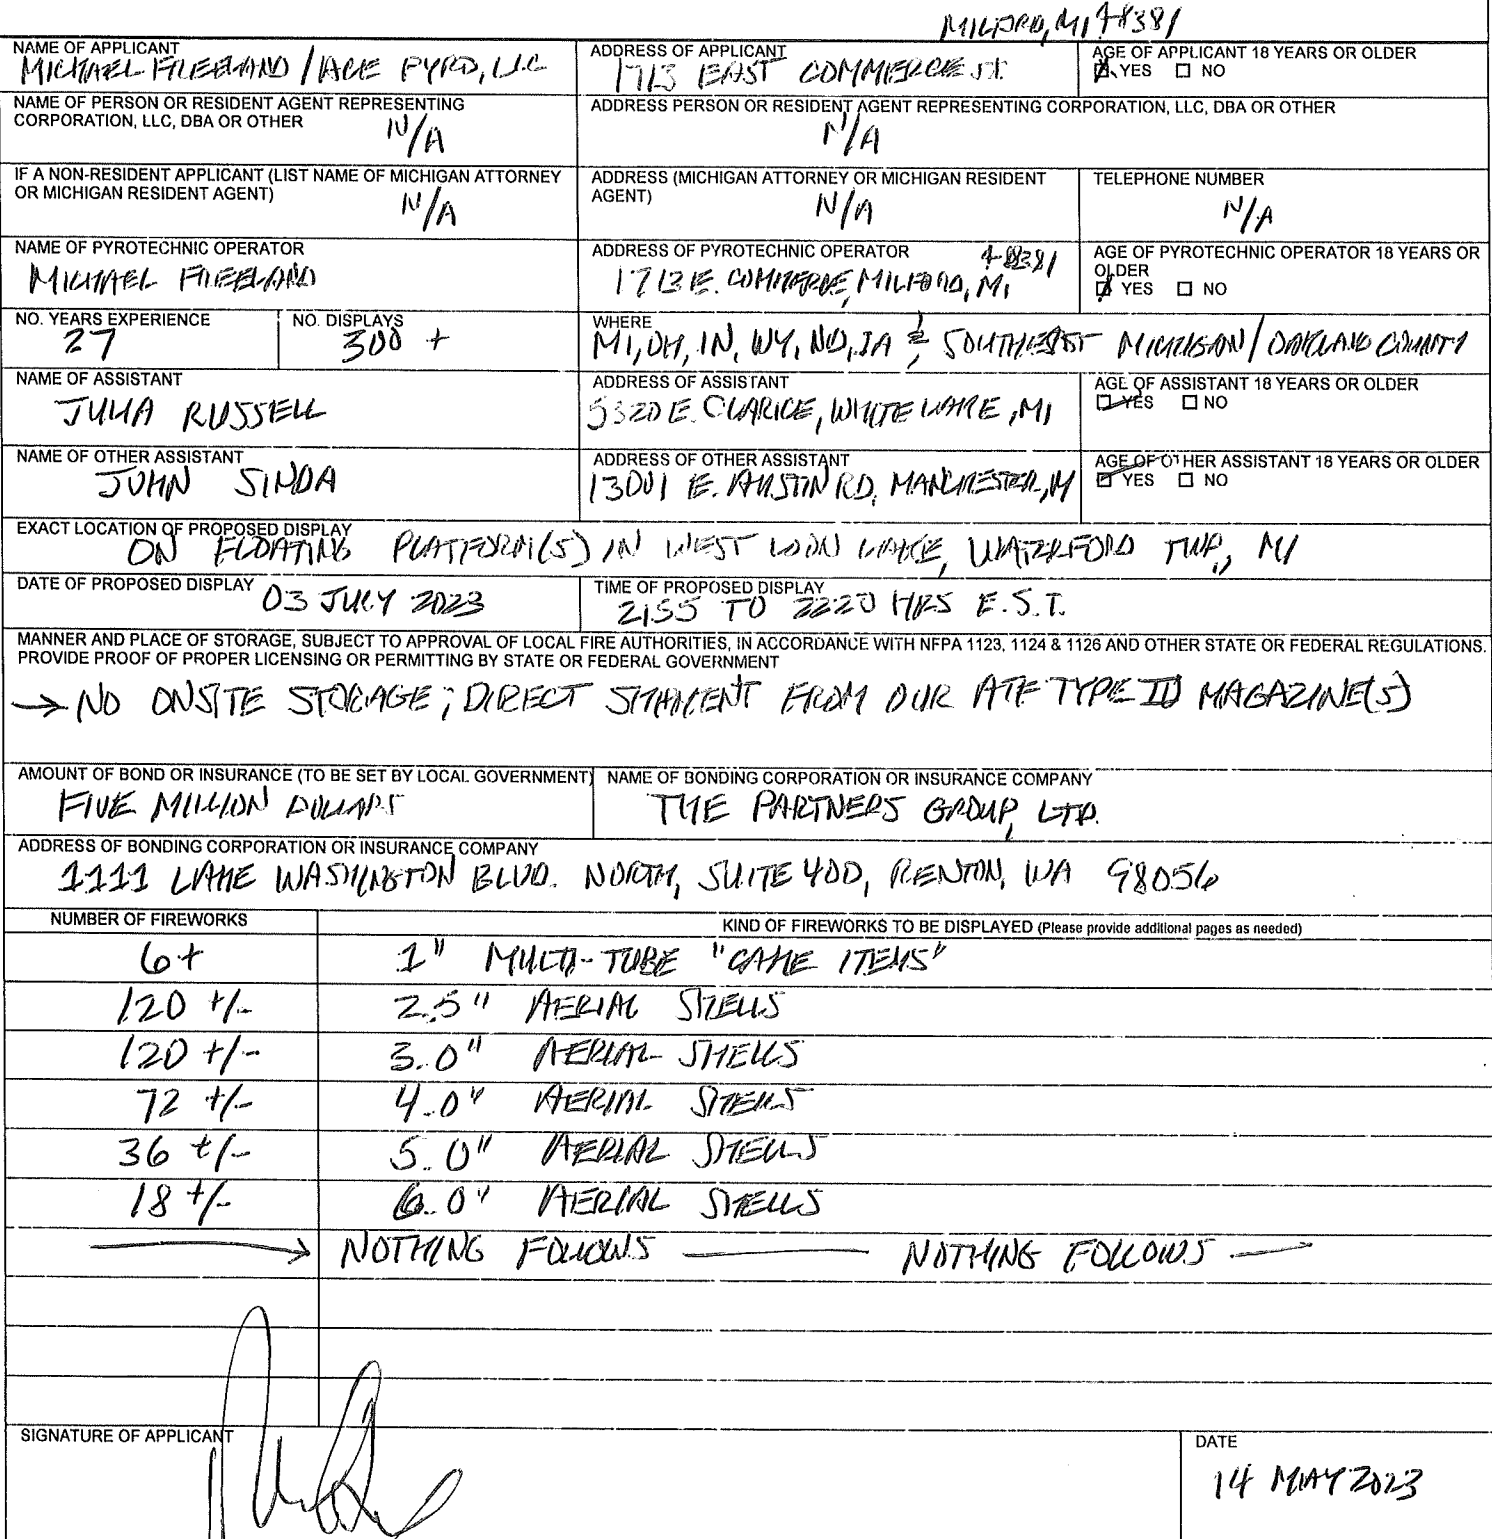 MILFORD, MI 48381
NAME OF APPLICANT
MICHAEL FREELAND / ACE PYRO, LLC
ADDRESS OF APPLICANT
1713 EAST COMMERCE ST.
AGE OF APPLICANT 18 YEARS OR OLDER
☒ YES ☐ NO
NAME OF PERSON OR RESIDENT AGENT REPRESENTING
CORPORATION, LLC, DBA OR OTHER
N/A
ADDRESS PERSON OR RESIDENT AGENT REPRESENTING CORPORATION, LLC, DBA OR OTHER
N/A
IF A NON-RESIDENT APPLICANT (LIST NAME OF MICHIGAN ATTORNEY
OR MICHIGAN RESIDENT AGENT)
N/A
ADDRESS (MICHIGAN ATTORNEY OR MICHIGAN RESIDENT
AGENT)
N/A
TELEPHONE NUMBER
N/A
NAME OF PYROTECHNIC OPERATOR
MICHAEL FREELAND
ADDRESS OF PYROTECHNIC OPERATOR
48381
1713 E. COMMERCE, MILFORD, MI
AGE OF PYROTECHNIC OPERATOR 18 YEARS OR
OLDER
☒ YES ☐ NO
NO. YEARS EXPERIENCE
27
NO. DISPLAYS
300 +
WHERE
MI, OH, IN, WY, ND, IA & SOUTHEAST MICHIGAN / OAKLAND COUNTY
NAME OF ASSISTANT
JULIA RUSSELL
ADDRESS OF ASSISTANT
5320 E. CLARICE, WHITE LAKE, MI
AGE OF ASSISTANT 18 YEARS OR OLDER
☒ YES ☐ NO
NAME OF OTHER ASSISTANT
JOHN SINDA
ADDRESS OF OTHER ASSISTANT
13001 E. AUSTIN RD, MANCHESTER, M
AGE OF OTHER ASSISTANT 18 YEARS OR OLDER
☒ YES ☐ NO
EXACT LOCATION OF PROPOSED DISPLAY
ON FLOATING PLATFORM(S) IN WEST LOON LAKE, WATERFORD TWP, MI
DATE OF PROPOSED DISPLAY 03 JULY 2023
TIME OF PROPOSED DISPLAY
2155 TO 2220 HRS E.S.T.
MANNER AND PLACE OF STORAGE, SUBJECT TO APPROVAL OF LOCAL FIRE AUTHORITIES, IN ACCORDANCE WITH NFPA 1123, 1124 & 1126 AND OTHER STATE OR FEDERAL REGULATIONS.
PROVIDE PROOF OF PROPER LICENSING OR PERMITTING BY STATE OR FEDERAL GOVERNMENT
→ NO ONSITE STORAGE; DIRECT SHIPMENT FROM OUR ATF TYPE IV MAGAZINE(S)
AMOUNT OF BOND OR INSURANCE (TO BE SET BY LOCAL GOVERNMENT)
FIVE MILLION DOLLARS
NAME OF BONDING CORPORATION OR INSURANCE COMPANY
THE PARTNERS GROUP, LTD.
ADDRESS OF BONDING CORPORATION OR INSURANCE COMPANY
1111 LAKE WASHINGTON BLVD. NORTH, SUITE 400, RENTON, WA 98056
NUMBER OF FIREWORKS
KIND OF FIREWORKS TO BE DISPLAYED (Please provide additional pages as needed)
6+ 1" MULTI-TUBE "CAKE ITEMS"
120 +/- 2.5" AERIAL SHELLS
120 +/- 3.0" AERIAL SHELLS
72 +/- 4.0" AERIAL SHELLS
36 +/- 5.0" AERIAL SHELLS
18 +/- 6.0" AERIAL SHELLS
→ NOTHING FOLLOWS — NOTHING FOLLOWS —
SIGNATURE OF APPLICANT
DATE
14 MAY 2023